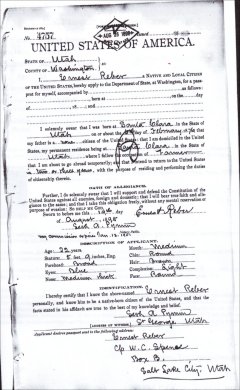 No. 4757.
AUG 25 1898
UNITED STATES OF AMERICA.
STATE OF Utah
COUNTY OF Washington
I, Ernest Reber, A NATIVE AND LOYAL CITIZEN
OF THE UNITED STATES, hereby apply to the Department of State, at Washington, for a pass-
port for myself, accompanied by as follows:
born at
on the day of , 18 , and
I solemnly swear that I was born at Santa Clara, in the State
of Utah, on or about the day of February, 1876, that
my father is a citizen of the United States; that I am domiciled in the United
States, my permanent residence being at Santa Clara, in the State
of Utah, where I follow the occupation of Farmer;
that I am about to go abroad temporarily; and that I intend to return to the United States
with the purpose of residing and performing the duties
of citizenship therein.
OATH OF ALLEGIANCE.
Further, I do solemnly swear that I will support and defend the Constitution of the
United States against all enemies, foreign and domestic; that I will bear true faith and alle-
giance to the same; and that I take this obligation freely, without any mental reservation or
purpose of evasion: SO HELP ME GOD.
Sworn to before me this day
Ernest Reber
of August, 1898
Seth A. Pymm
My commission expires Jan.
DESCRIPTION OF APPLICANT.
Age: 22 years.
Mouth: Medium
Stature: 5 feet, inches, Eng.
Chin: Round
Forehead: Broad
Hair: Brown
Eyes: Blue
Complexion: Light
Nose: Medium
Face: Round
IDENTIFICATION.
I hereby certify that I know the above-named Ernest Reber
personally, and know him to be a native-born citizen of the United States, and that the
facts stated in his affidavit are true to the best of my knowledge and belief.
Seth A. Pymm
[ADDRESS OF WITNESS] St George Utah
Applicant desires passport sent to following address:
Ernest Reber
C/o W. C. Spence
Box B.
Salt Lake City, Utah